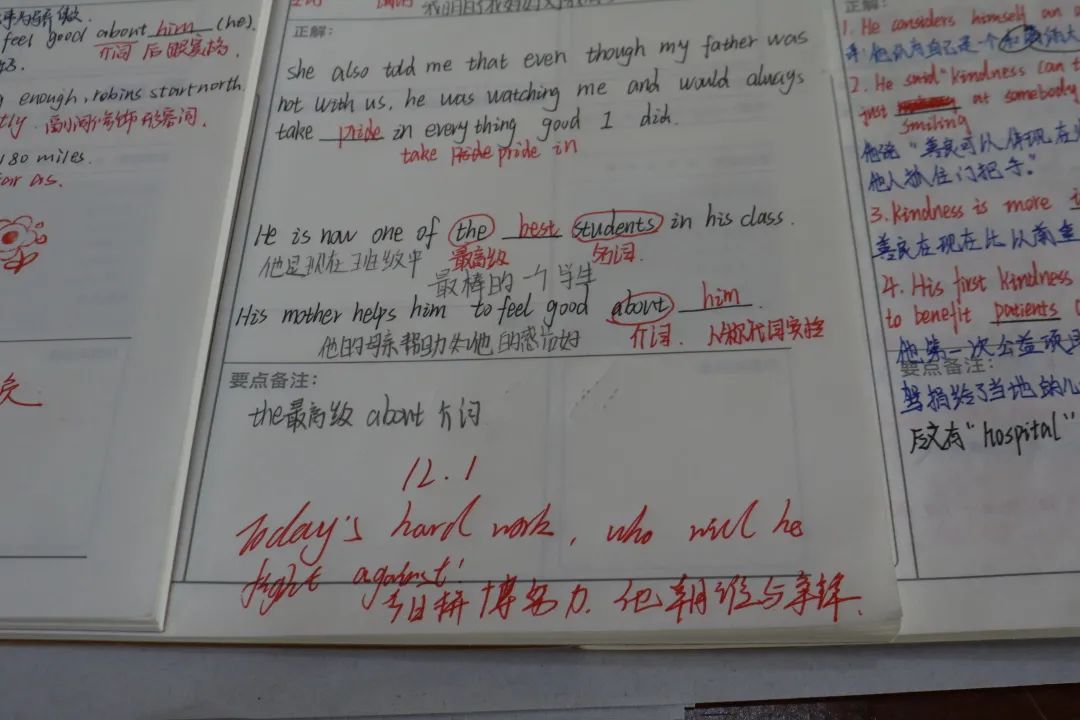 feel good about him (he).
介词 后跟宾格
enough, robins start north.
180 miles.
正解:
she also told me that even though my father was
not with us, he was watching me and would always
take pride in everything good I did.
take pride in
He is now one of the best students in his class.
他是现在班级中 最高级 名词.
最棒的一个学生
His mother helps him to feel good about him.
介词.
要点备注:
the最高级 about 介词
12.1
Today's hard work, who will he
fight against!
今日拼搏努力. 他朝谁与争锋.
正解:
1. He considers himself an
2. He said "Kindness can
just at somebody
smiling
他说 "善良可以体现在
他人抓住门把手."
3. Kindness is more
善良在现在比以前
4. His first kindness
to benefit patients
他第一次公益项目
要点备注:
捐给了当地的儿
后文有 "hospital"